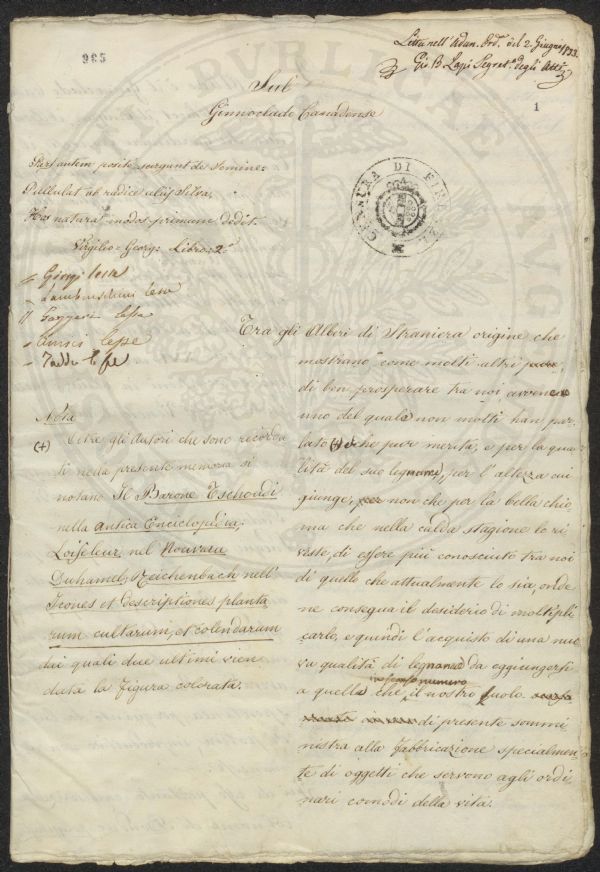 985
Letta nell' Adun. Ord. del 2. Giugno 1833.
Gio. B. Lapi Segret.o degli Atti
1
Sul
Ginnoclado Canadense
CENSURA DI FIRENZE
Pars autem posito surgunt de semine:
Pullulat ab radice aliis silva.
Hos natura modos primum dedit.
Virgilio = Georg: Libro: 2.o
Giorgi lesse
Lambruschini lesse
Gazzeri lesse
lesse
Taddei lesse
Nota
(+) Oltre gli Autori che sono ricorda
ti nella presente memoria si
notano Il Barone Tschoudi
nella antica Enciclopedia,
Loiseleur nel Nouveau
Duhamel, Reichenbach nell'
Icones et descriptiones planta
rum cultarum, et colendarum
dai quali due ultimi vien
data la figura colorata.
Tra gli Alberi di Straniera origine che
mostrano come molti altri
di ben prosperare tra noi avvene
uno del quale non molti han par
lato (+) che pur merita, e per la qua
lità del suo legname, per l'altezza cui
giunge, per non che per la bella chio
ma che nella calda stagione lo ri
veste, di essere più conosciuto tra noi
di quello che attualmente lo sia, onde
ne consegua il desiderio di moltipli
carlo, e quindi l'acquisto di una nuo
va qualità di legname da aggiungersi
numero
a quelle che il nostro suolo
di presente sommi
nistra alla fabbricazione specialmen
te di oggetti che servono agli ordi
nari comodi della vita.